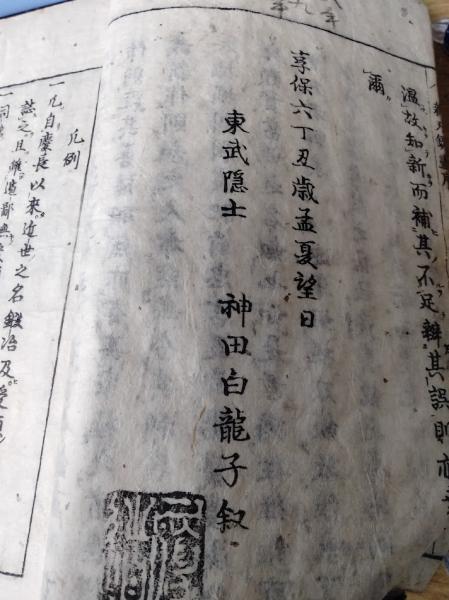 温故知新而補其不足辨其誤則亦
爾
享保六丁丑歳孟夏望日
東武隠士 神田白龍子叙
凡例
一凡自慶長以来近世之名鍛冶及受
誌之且雖遺